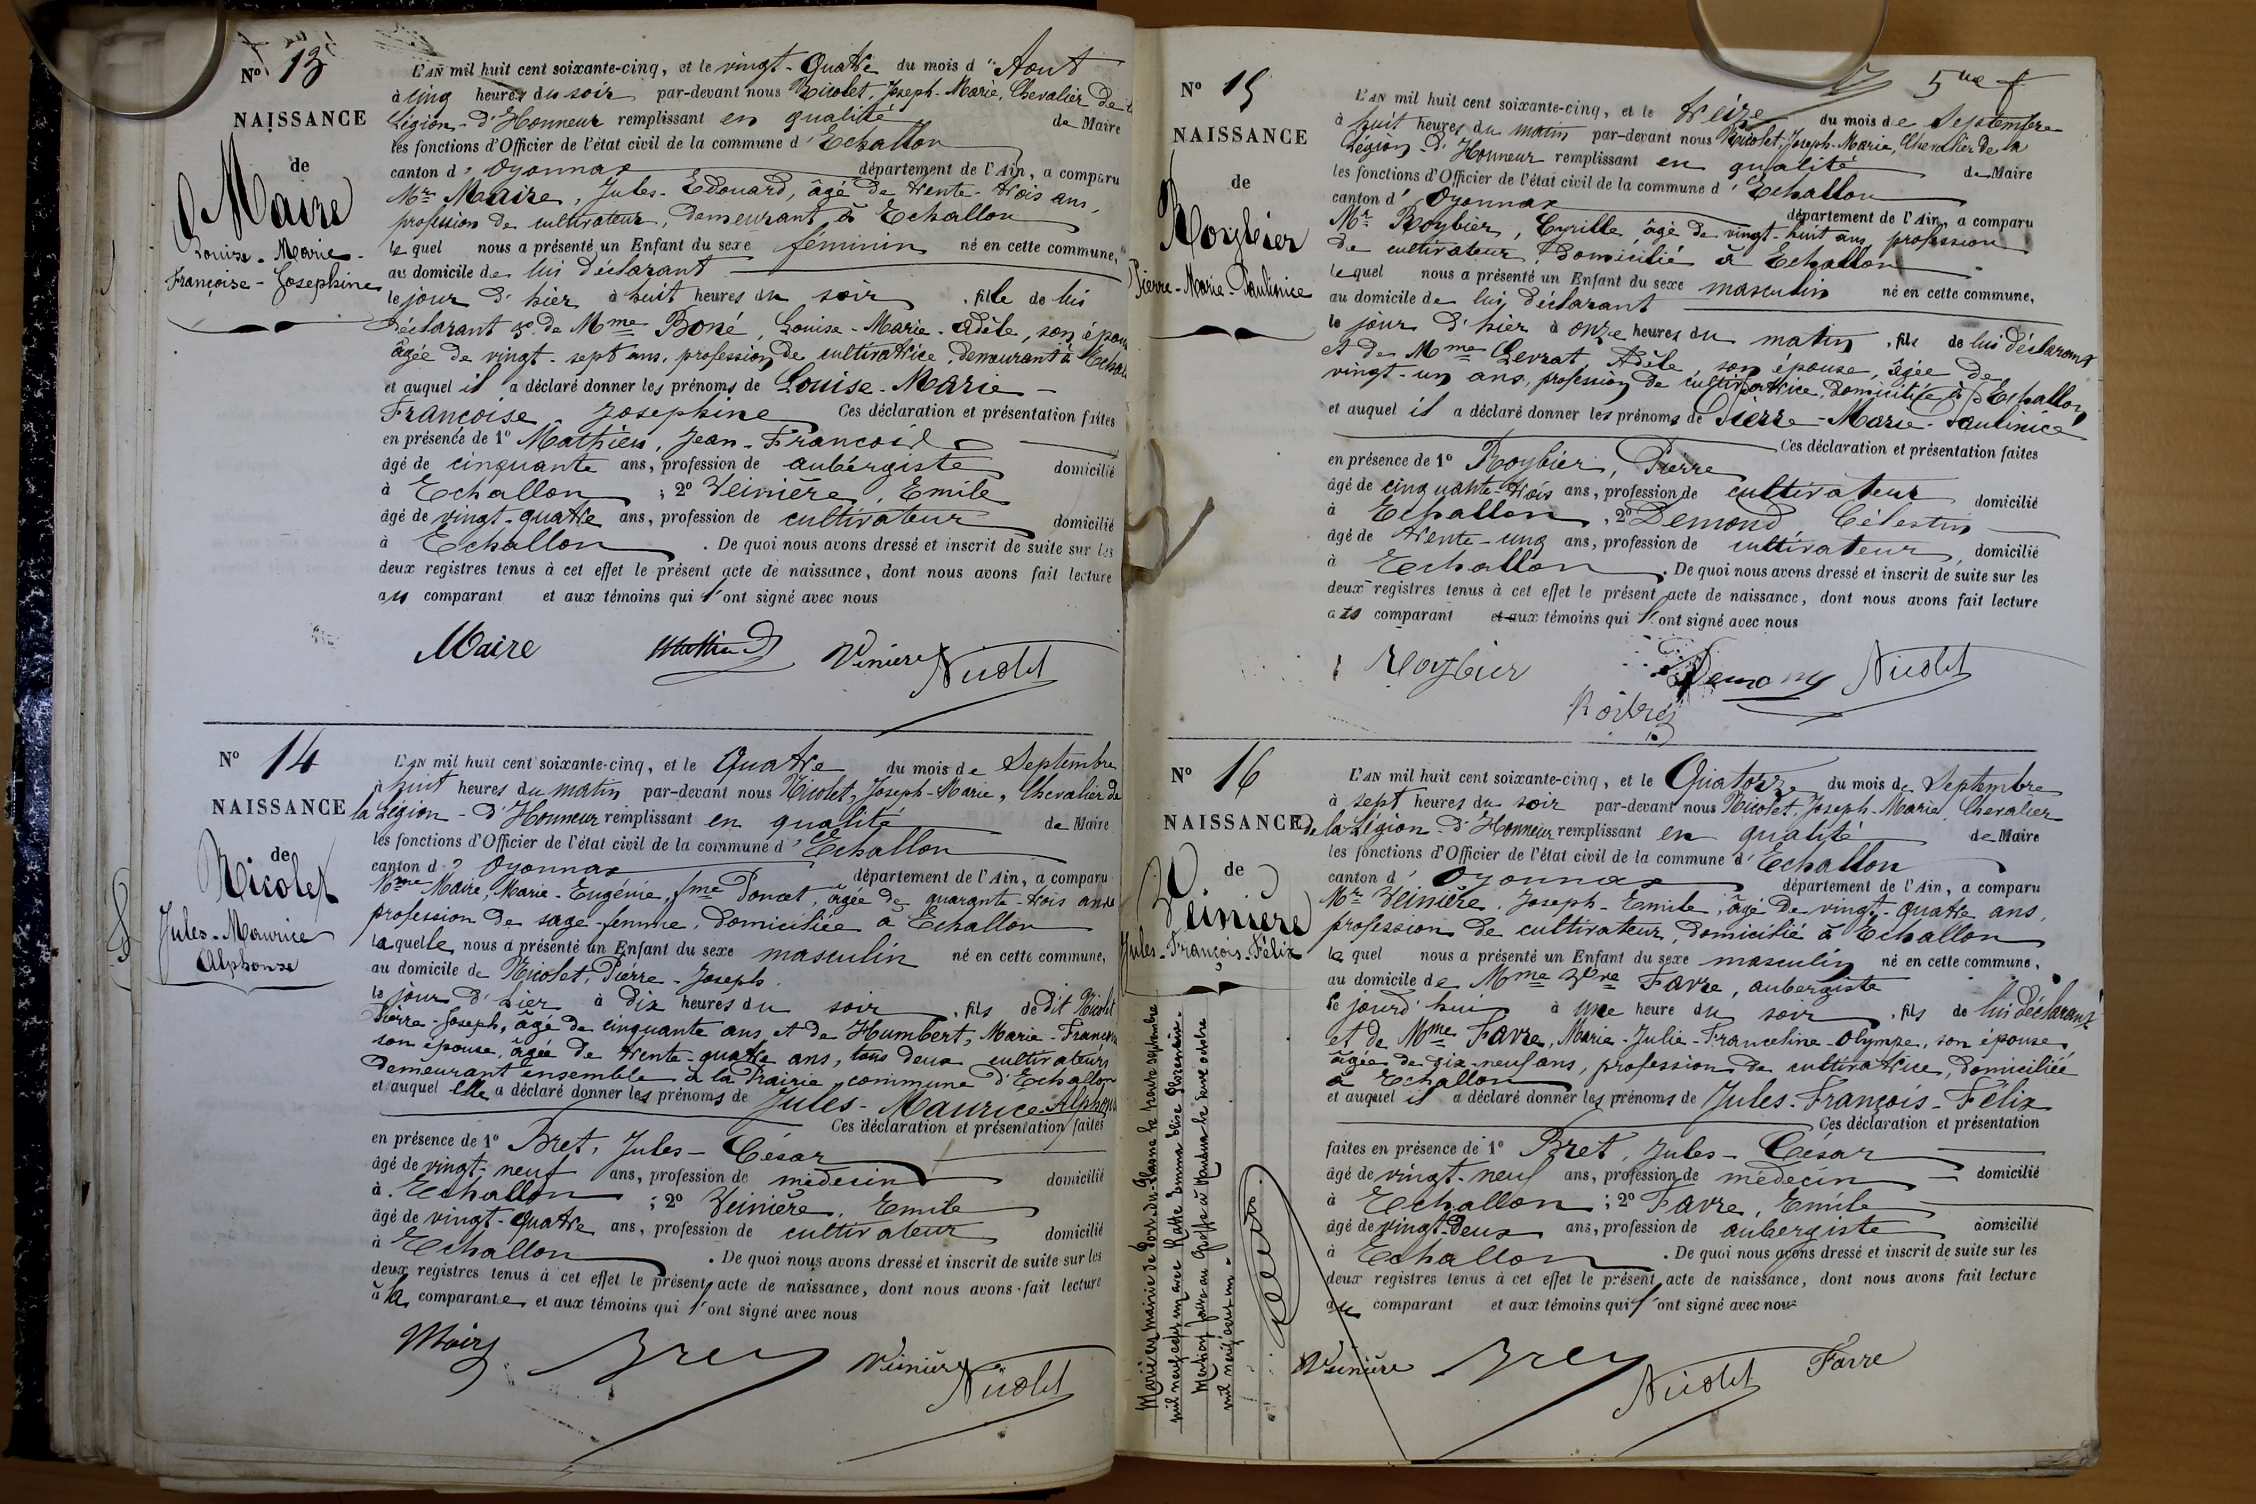 No 13
NAISSANCE
de
Maire
Louise-Marie-
Françoise-Josephine
L'AN mil huit cent soixante-cinq, et le vingt-Quatre du mois d'Aout
à cinq heures du soir par-devant nous Nicolet, Joseph-Marie, Chevalier de la
Légion-d'Honneur remplissant en qualité de Maire
les fonctions d'Officier de l'état civil de la commune d'Echallon
canton d'Oyonnax département de l'Ain, a comparu
Mr Maire, Jules-Edouard, âgé de trente-trois ans,
profession de cultivateur, demeurant à Echallon
lequel nous a présenté un Enfant du sexe féminin né en cette commune,
au domicile de lui déclarant
le jour d'hier à huit heures du soir, fille de lui
déclarant & de Mme Boné, Louise-Marie-Adèle, son épouse
âgée de vingt-sept ans, profession de cultivatrice, demeurant à Echallon
et auquel il a déclaré donner les prénoms de Louise-Marie-
Françoise Josephine Ces déclaration et présentation faites
en présence de 1o Mathieu, Jean-François
âgé de cinquante ans, profession de aubergiste domicilié
à Echallon ; 2o Veinière, Emile
âgé de vingt-quatre ans, profession de cultivateur domicilié
à Echallon. De quoi nous avons dressé et inscrit de suite sur les
deux registres tenus à cet effet le présent acte de naissance, dont nous avons fait lecture
au comparant et aux témoins qui l'ont signé avec nous
Maire Mathieu Viniere Nicolet
No 14
NAISSANCE
de
Nicolet
Jules-Maurice
Alphonse
L'AN mil huit cent soixante-cinq, et le Quatre du mois de Septembre
à huit heures du matin par-devant nous Nicolet, Joseph-Marie, Chevalier de
la Légion-d'Honneur remplissant en qualité de Maire
les fonctions d'Officier de l'état civil de la commune d'Echallon
canton d'Oyonnax département de l'Ain, a comparu
Mme Maire, Marie-Eugénie, fme Poncet, âgée de quarante-trois ans
profession de sage-femme, domiciliée à Echallon
laquelle nous a présenté un Enfant du sexe masculin né en cette commune,
au domicile de Nicolet, Pierre-Joseph.
le jour d'hier à dix heures du soir, fils de dit Nicolet
Pierre-Joseph, âgé de cinquante ans et de Humbert, Marie-Françoise
son épouse, âgée de trente-quatre ans, tous deux cultivateurs
demeurant ensemble à la Prairie, commune d'Echallon
et auquel elle a déclaré donner les prénoms de Jules-Maurice-Alphonse
Ces déclaration et présentation faites
en présence de 1o Bret, Jules-César
âgé de vingt-neuf ans, profession de médecin domicilié
à Echallon ; 2o Veinière, Emile
âgé de vingt-quatre ans, profession de cultivateur domicilié
à Echallon. De quoi nous avons dressé et inscrit de suite sur les
deux registres tenus à cet effet le présent acte de naissance, dont nous avons fait lecture
à la comparante et aux témoins qui l'ont signé avec nous
Maire Bret Veinière Nicolet
5me f
No 15
NAISSANCE
de
Roybier
Pierre-Marie-Paulinice
L'AN mil huit cent soixante-cinq, et le treize du mois de Septembre
à huit heures du matin par-devant nous Nicolet, Joseph-Marie, Chevalier de la
Légion-d'Honneur remplissant en qualité de Maire
les fonctions d'Officier de l'état civil de la commune d'Echallon
canton d'Oyonnax département de l'Ain, a comparu
Mr Roybier, Cyrille, âgé de vingt-huit ans, profession
de cultivateur, domicilié à Echallon
lequel nous a présenté un Enfant du sexe masculin né en cette commune,
au domicile de lui déclarant
le jour d'hier à onze heures du matin, fils de lui déclarant
et de Mme Levrat, Adèle, son épouse, âgée de
vingt-un ans, profession de cultivatrice, domiciliée à Echallon
et auquel il a déclaré donner les prénoms de Pierre-Marie-Paulinice
Ces déclaration et présentation faites
en présence de 1o Roybier, Pierre
âgé de cinquante-trois ans, profession de cultivateur domicilié
à Echallon, 2o Demond Célestin
âgé de trente-cinq ans, profession de cultivateur domicilié
à Echallon. De quoi nous avons dressé et inscrit de suite sur les
deux registres tenus à cet effet le présent acte de naissance, dont nous avons fait lecture
comparant et aux témoins qui l'ont signé avec nous
Roybier Demond Nicolet
No 16
NAISSANCE
de
Veinière
Jules-François-Félix
L'AN mil huit cent soixante-cinq, et le Quatorze du mois de Septembre
à sept heures du soir par-devant nous Nicolet, Joseph-Marie, Chevalier
de la Légion-d'Honneur remplissant en qualité de Maire
les fonctions d'Officier de l'état civil de la commune d'Echallon
canton d'Oyonnax département de l'Ain, a comparu
Mr Veinière, Joseph-Emile, âgé de vingt-quatre ans,
profession de cultivateur, domicilié à Echallon
lequel nous a présenté un Enfant du sexe masculin né en cette commune,
au domicile de Mme Vve Favre, aubergiste
le jourd'hui à une heure du soir, fils de lui déclarant
et de Mme Favre, Marie-Julie-Franceline-Olympe, son épouse
âgée de dix-neuf ans, profession de cultivatrice, domiciliée
à Echallon
et auquel il a déclaré donner les prénoms de Jules-François-Félix
Ces déclaration et présentation
faites en présence de 1o Bret, Jules-César
âgé de vingt-neuf ans, profession de médecin domicilié
à Echallon ; 2o Favre, Emile
âgé de vingt-deux ans, profession de aubergiste domicilié
à Echallon. De quoi nous avons dressé et inscrit de suite sur les
deux registres tenus à cet effet le présent acte de naissance, dont nous avons fait lecture
au comparant et aux témoins qui l'ont signé avec nous
Veinière Bret Nicolet Favre
Marié en mairie de septembre
mil neuf cent un avec Emma Elise
Mention faite au Greffe à Nantua le octobre
mil neuf cent un.